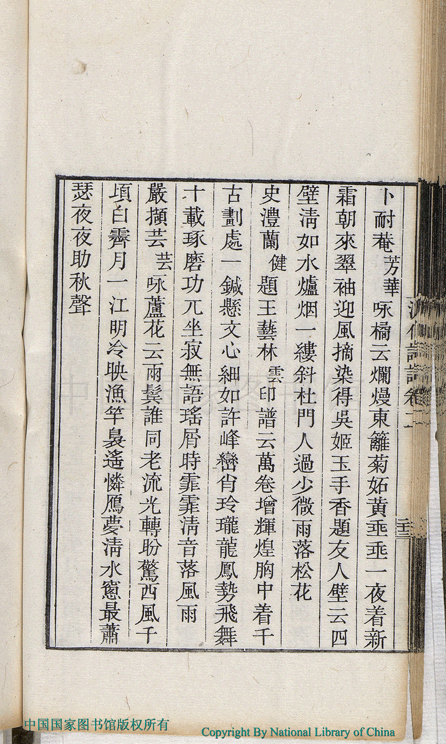 卜耐菴芳華咏橘云爛熳東籬菊妬黃垂垂一夜着新
霜朝來翠袖迎風摘染得吳姬玉手香題友人壁云四
壁淸如水爐烟一縷斜杜門人過少微雨落松花
史澧蘭健題王藝林雲印譜云萬卷增輝煌胸中着千
古劃處一鍼懸文心細如許峰巒肖玲瓏龍鳳勢飛舞
十載琢磨功兀坐寂無語瑤屑時霏霏淸音落風雨
嚴擷芸芸咏蘆花云雨鬢誰同老流光轉盼驚西風千
頃白霽月一江明冷映漁竿裊遙憐鴈夢淸水窻最蕭
瑟夜夜助秋聲
中国国家图书馆版权所有
Copyright By National Library of China